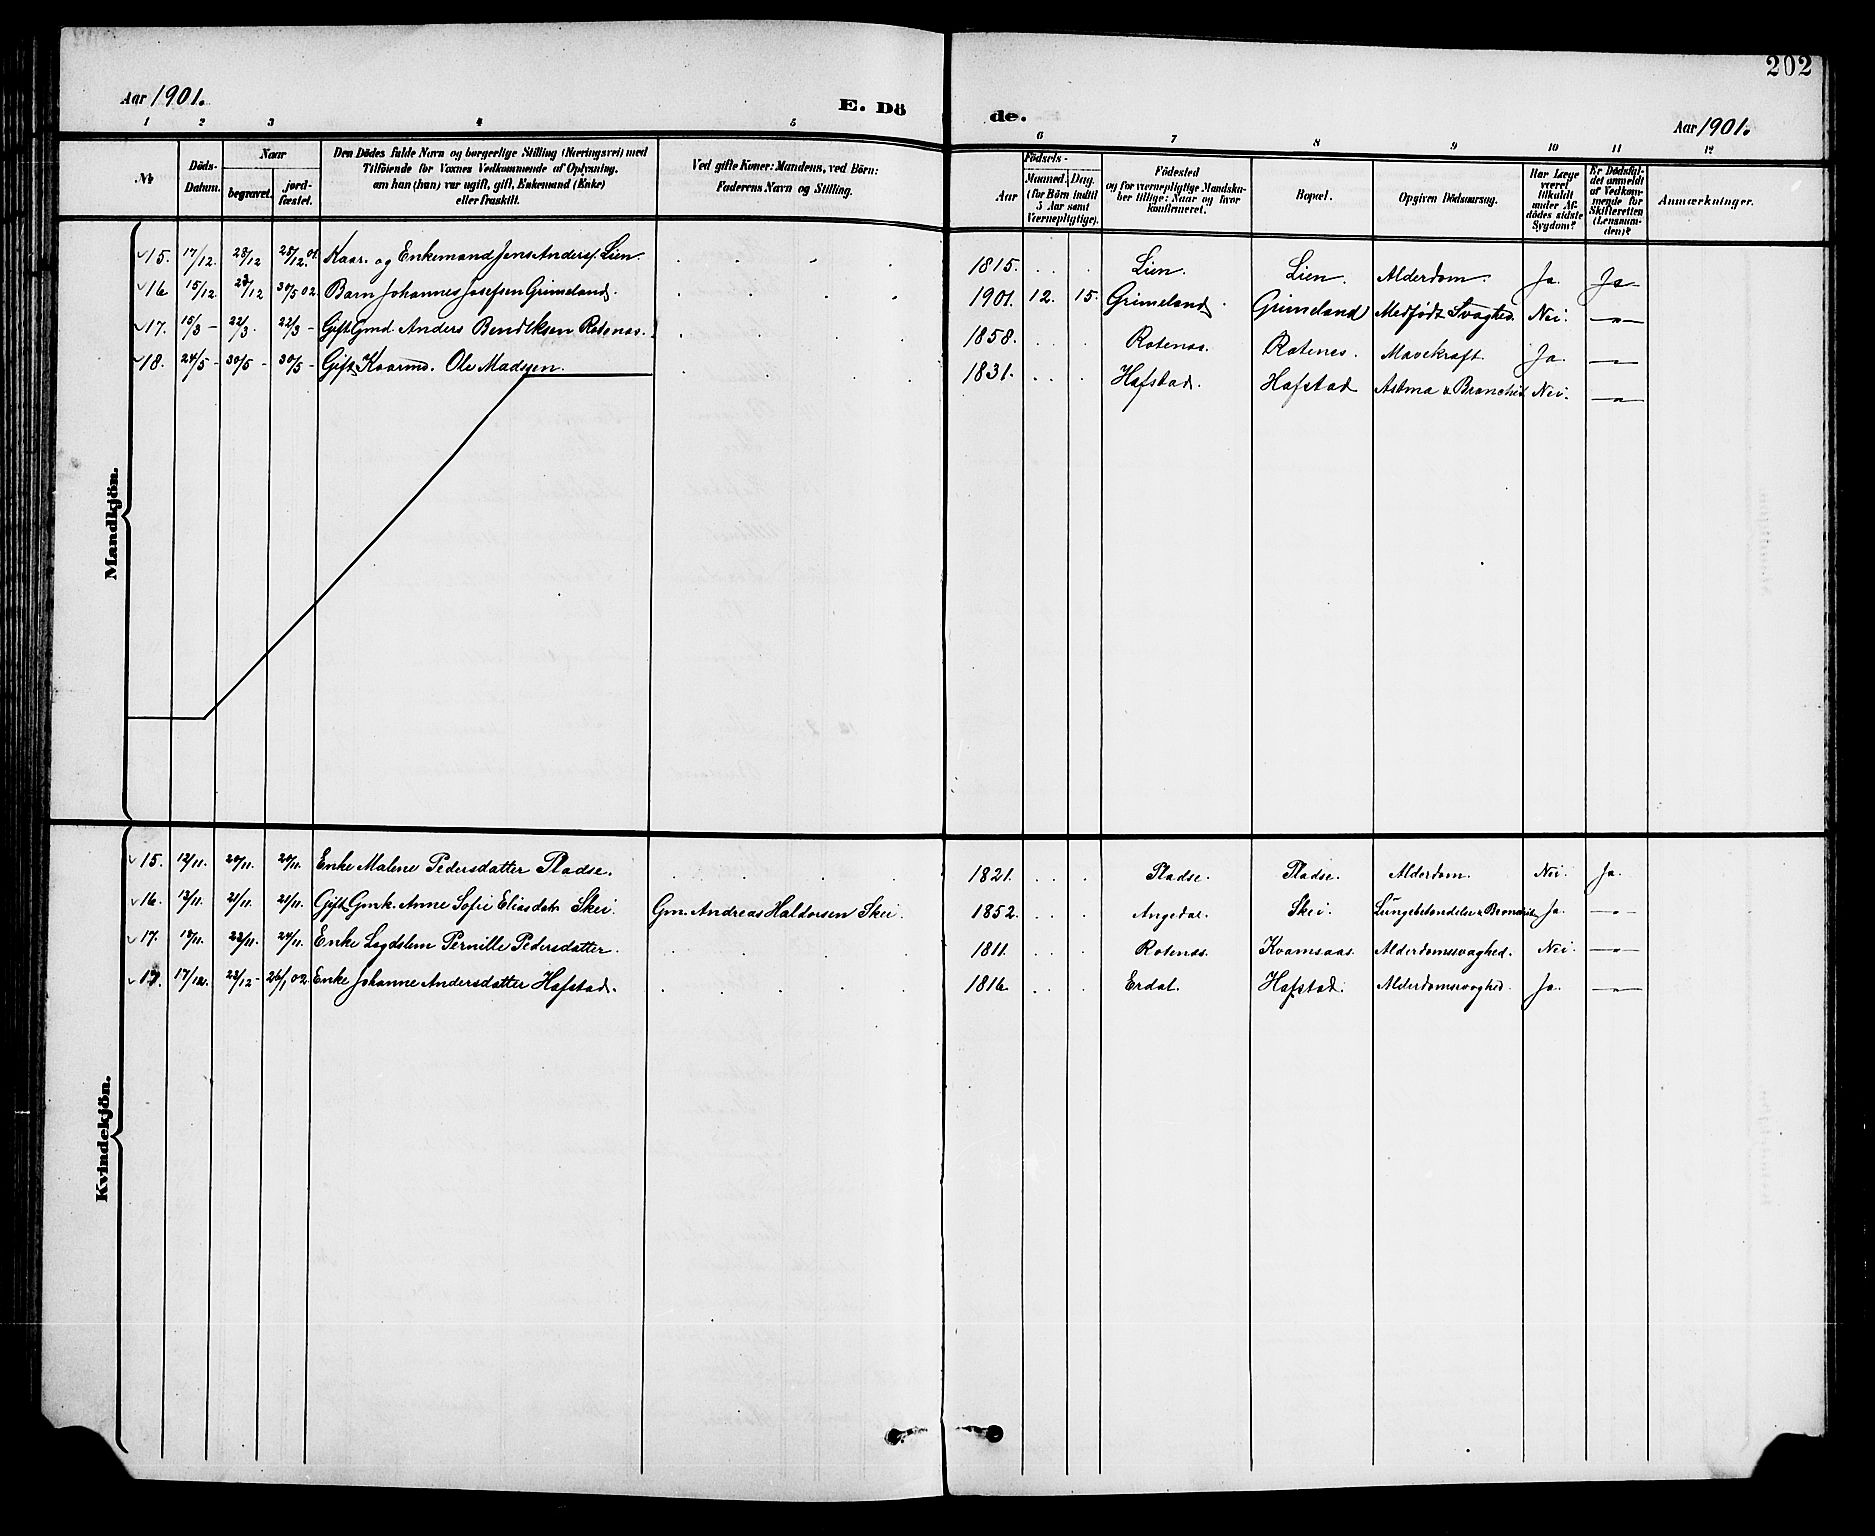 202
Aar 1901. E. Dö de. Aar 1901.
1 2 3 4 5 6 7 8 9 10 11 12
№
Döds-Datum.
Naar
begravet.
jord-fæstet.
Den Dödes fulde Navn og borgerlige Stilling (Næringsvei) med
Tilföiende for Voxnes Vedkommende af Oplysning,
om han (hun) var ugift, gift, Enkemand (Enke)
eller fraskilt.
Ved gifte Koner: Mandens, ved Börn:
Faderens Navn og Stilling.
Födsels-
Aar
Maaned.
Dag.
(for Börn indtil
5 Aar samt
Værnepligtige).
Födested
og for værnepligtige Mandska-
ber tillige: Naar og hvor
konfirmeret.
Bopæl.
Opgiven Dödsaarsag.
Har Læge
været
tilkaldt
under Af-
dödes sidste
Sygdom?
Er Dödsfal-
det anmeldt
af Vedkom-
mende for
Skifteretten
(Lensman-
den)?
Anmærkninger.
Mandkjön.
15. 17/12. 28/12 25/12.01. Kaar. og Enkemand Jens Anders. Lien. 1815. Lien. Lien. Alderdom. Ja. Ja
16 15/12. 23/12 30/5 02. Barn Johannes Josefsen Grimeland. 1901. 12. 15. Grimeland. Grimeland Medfödt Svaghed. Nei. —"—
17. 15/3 — 22/3. 22/3 — Gift Gmd. Anders Bendiksen Rotenes. 1858. Rotenes. Rotenes. Mavekræft. Ja. —"—
18. 24/5 — 30/5 — 30/5 — Gift Kaarmd. Ole Madsen. 1831. Hafstad. Hafstad Astma & Bronchit. Nei. —"—
Kvindekjön.
15. 12/11. 20/11. 20/11. Enke Malene Pedersdatter Pladse. 1821. Pladse. Pladse. Alderdom. Nei. Ja.
16. 13/11. 21/11. 21/11. Gift Gmk. Anne Sofie Eliasdatr Skei. Gm. Andreas Haldorsen Skei. 1852. Angedal. Skei. Lungebetændelse & Bronchit. Ja. —"—
17. 18/11. 23/11. 24/11. Enke Legdslem Pernille Pedersdatter. 1811. Rotenes. Kvamsaas. Alderdomssvaghed. Nei. —"—
17. 17/12. 23/12 — 26/1 02. Enke Johanne Andersdatter Hafstad. 1816 Erdal. Hafstad. Alderdomssvaghed. Ja. —"—